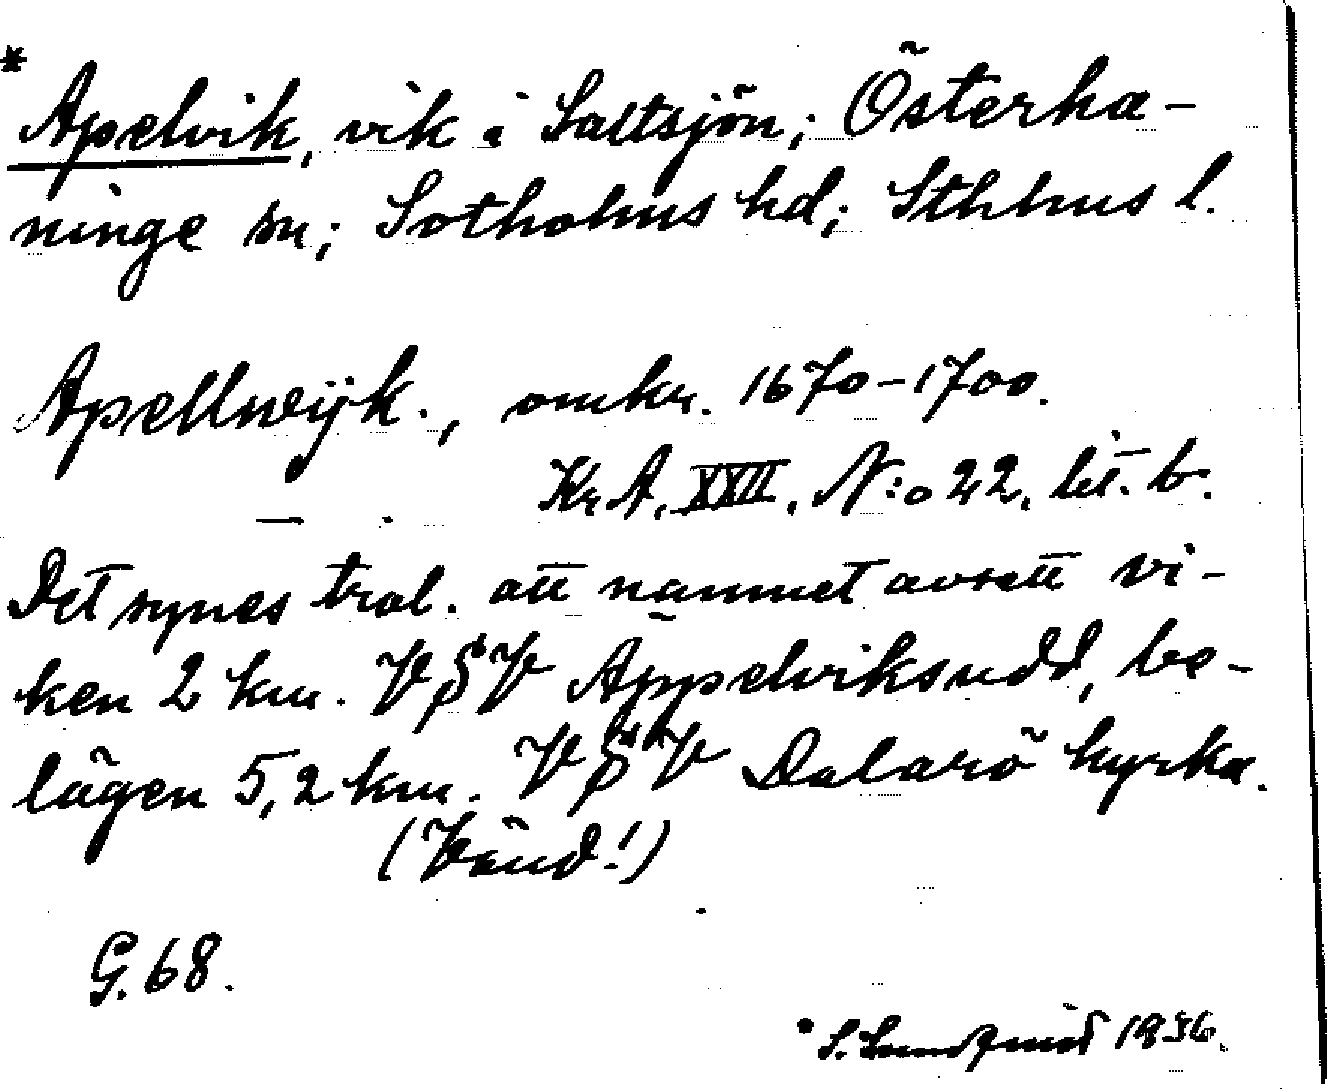 * Apelvik, vik i Saltsjön; Österha-
ninge sn; Sotholms hd; Sthlms l.
Apellwijk., omkr. 1670-1700.
Kr. A. XXII. N:o 22. lit. b.
Det synes trol. att namnet avsett vi-
ken 2 km. V Appelviksudd, be-
lägen 5,2 km. V Dalarö kyrka.
(Vänd!)
G. 68.
S. Lundqvist 1936.